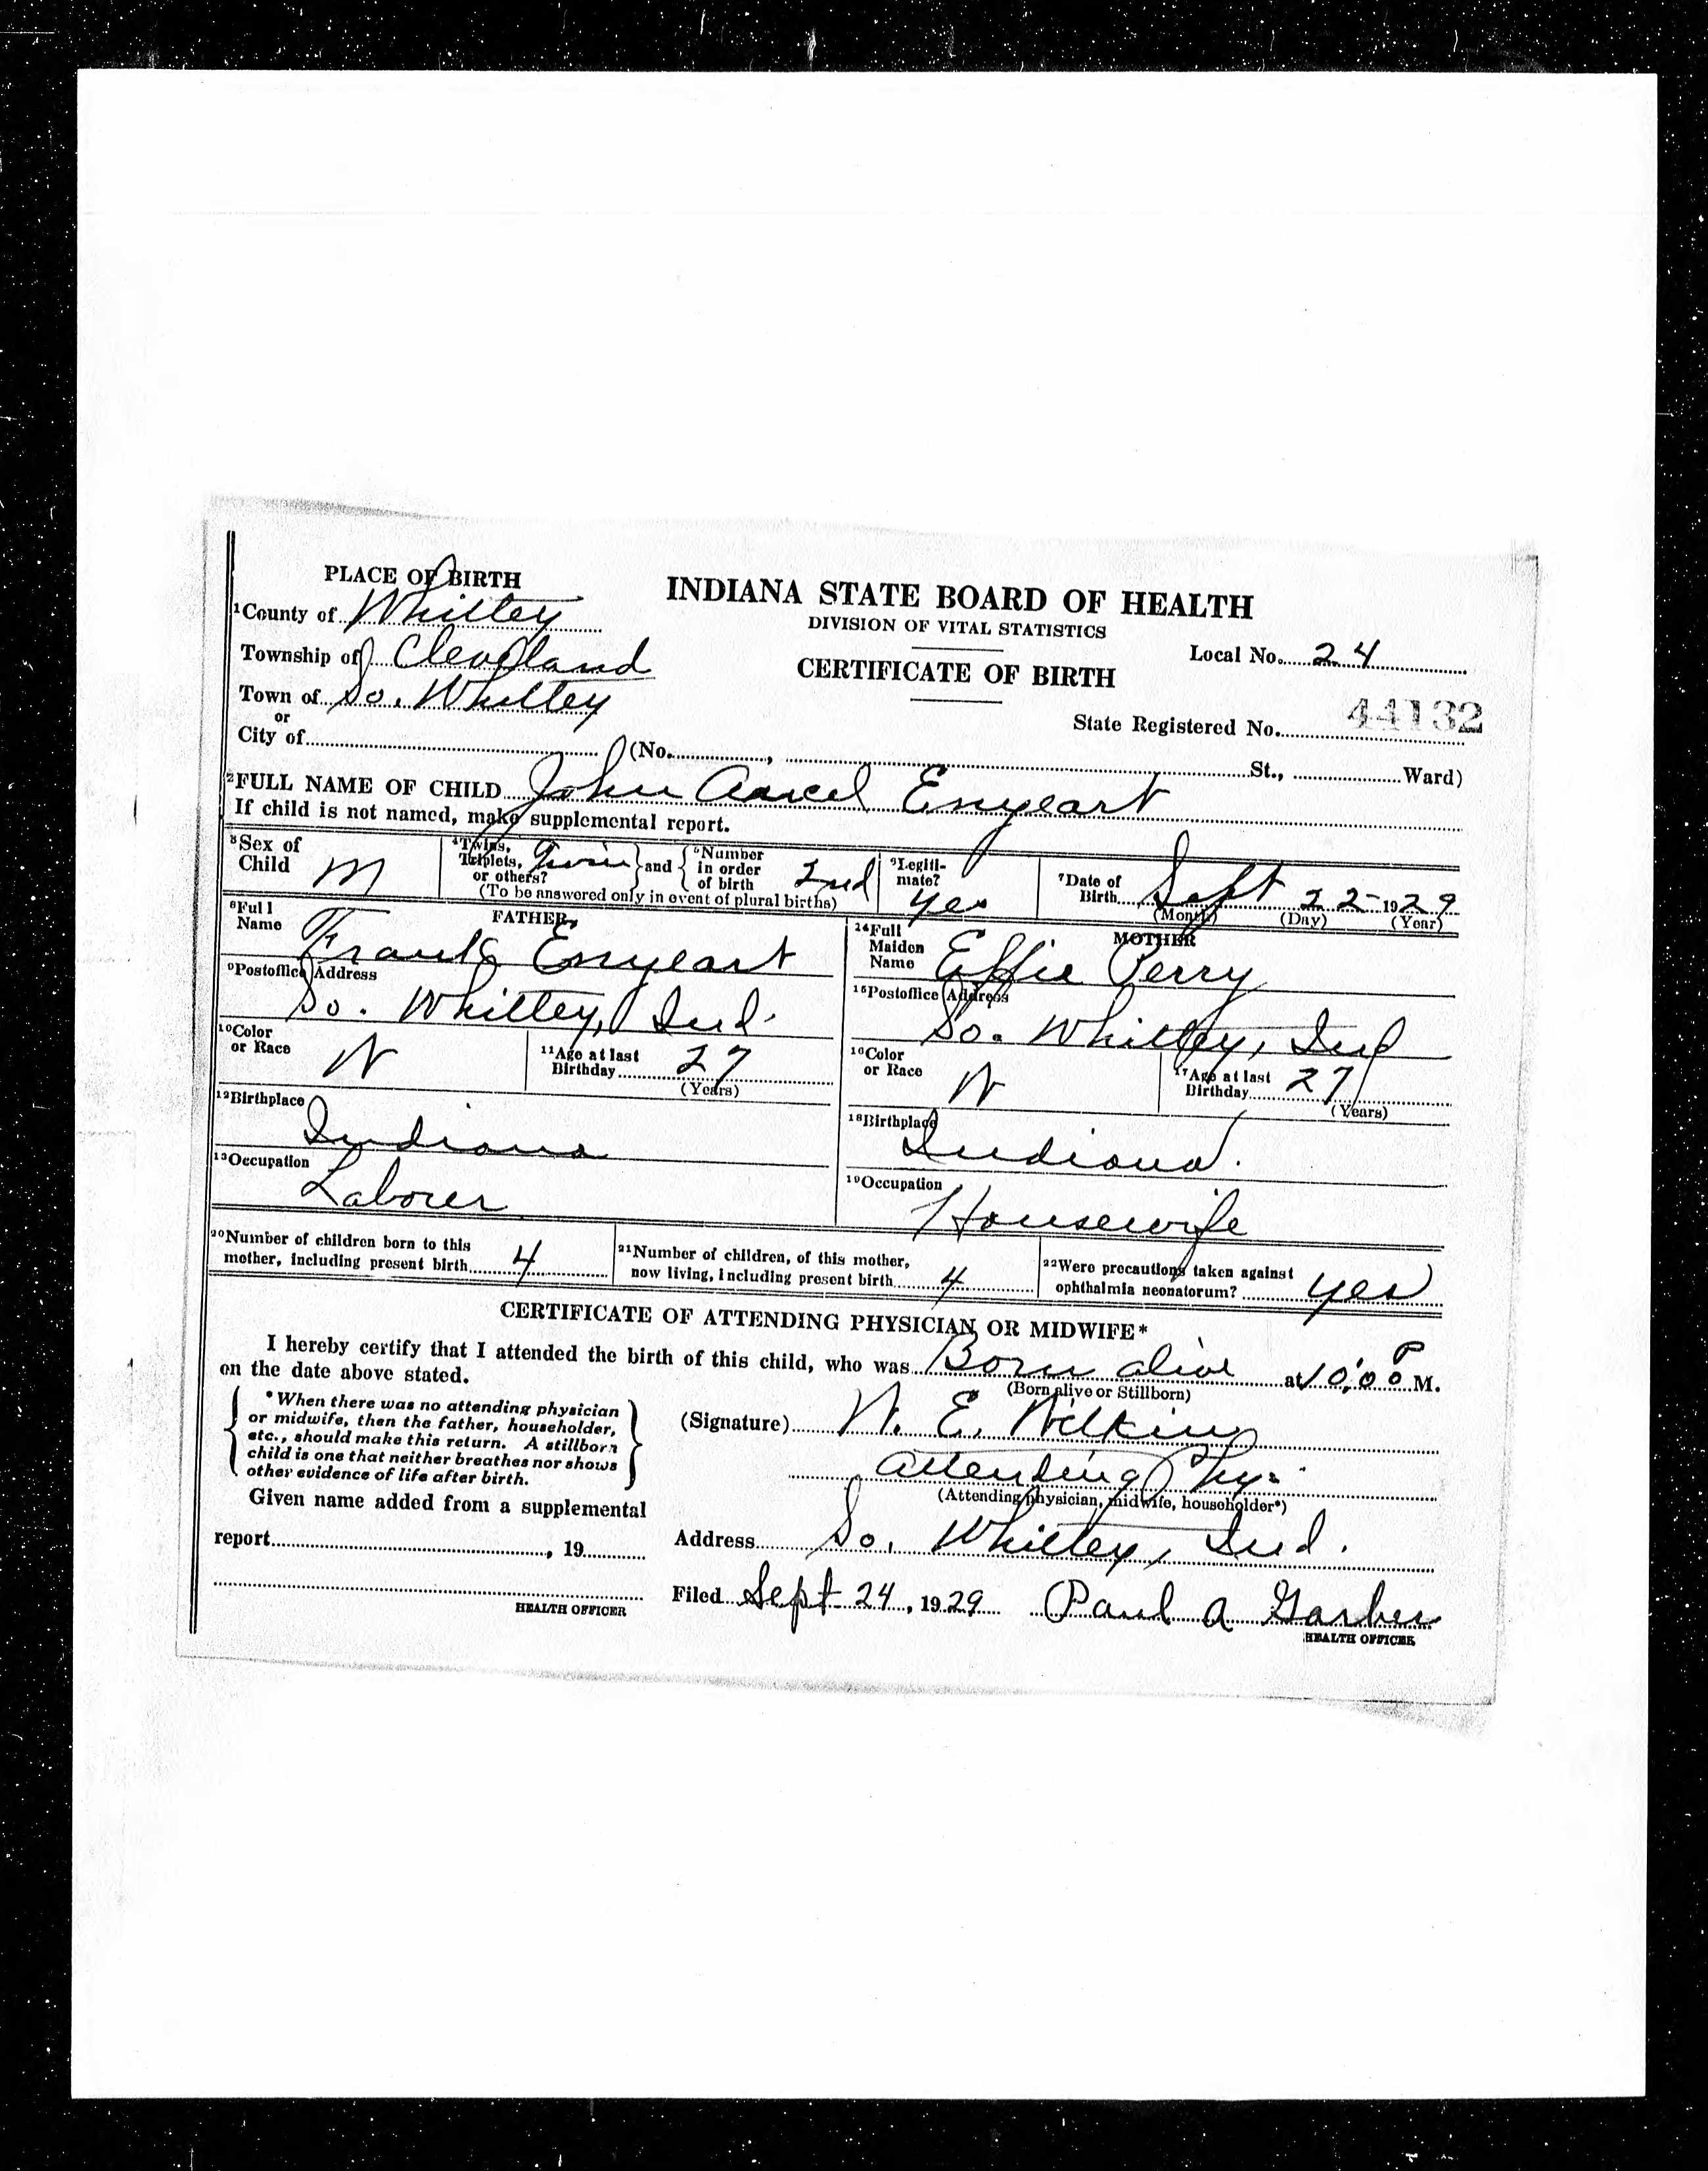 PLACE OF BIRTH
1County of Whitley
Township of Cleveland
Town of So. Whitley
or
City of
INDIANA STATE BOARD OF HEALTH
DIVISION OF VITAL STATISTICS
CERTIFICATE OF BIRTH
Local No. 24
State Registered No. 44132
(No. , St., Ward)
2FULL NAME OF CHILD John Enyeart
If child is not named, make supplemental report.
3Sex of Child M
4Twins, Triplets, or others? Twin and 5Number in order of birth 2nd
(To be answered only in event of plural births)
6Legitimate? Yes
7Date of Birth Sept 22-1929
(Month) (Day) (Year)
FATHER
8Full Name Frank Enyeart
9Postoffice Address
So. Whitley, Ind.
10Color or Race W
11Age at last Birthday 27
(Years)
12Birthplace
Indiana
13Occupation
Laborer
MOTHER
14Full Maiden Name Effie Perry
15Postoffice Address
So. Whitley, Ind
16Color or Race W
17Age at last Birthday 27
(Years)
18Birthplace
Indiana.
19Occupation
Housewife
20Number of children born to this mother, including present birth 4
21Number of children, of this mother, now living, including present birth 4
22Were precautions taken against ophthalmia neonatorum? yes
CERTIFICATE OF ATTENDING PHYSICIAN OR MIDWIFE*
I hereby certify that I attended the birth of this child, who was Born alive at 10:00 P M.
(Born alive or Stillborn)
on the date above stated.
*When there was no attending physician
or midwife, then the father, householder,
etc., should make this return. A stillborn
child is one that neither breathes nor shows
other evidence of life after birth.
(Signature) E.
attending Phy.
(Attending physician, midwife, householder*)
Given name added from a supplemental
report , 19
HEALTH OFFICER
Address So. Whitley, Ind.
Filed Sept 24, 1929 Paul A Garber
HEALTH OFFICER